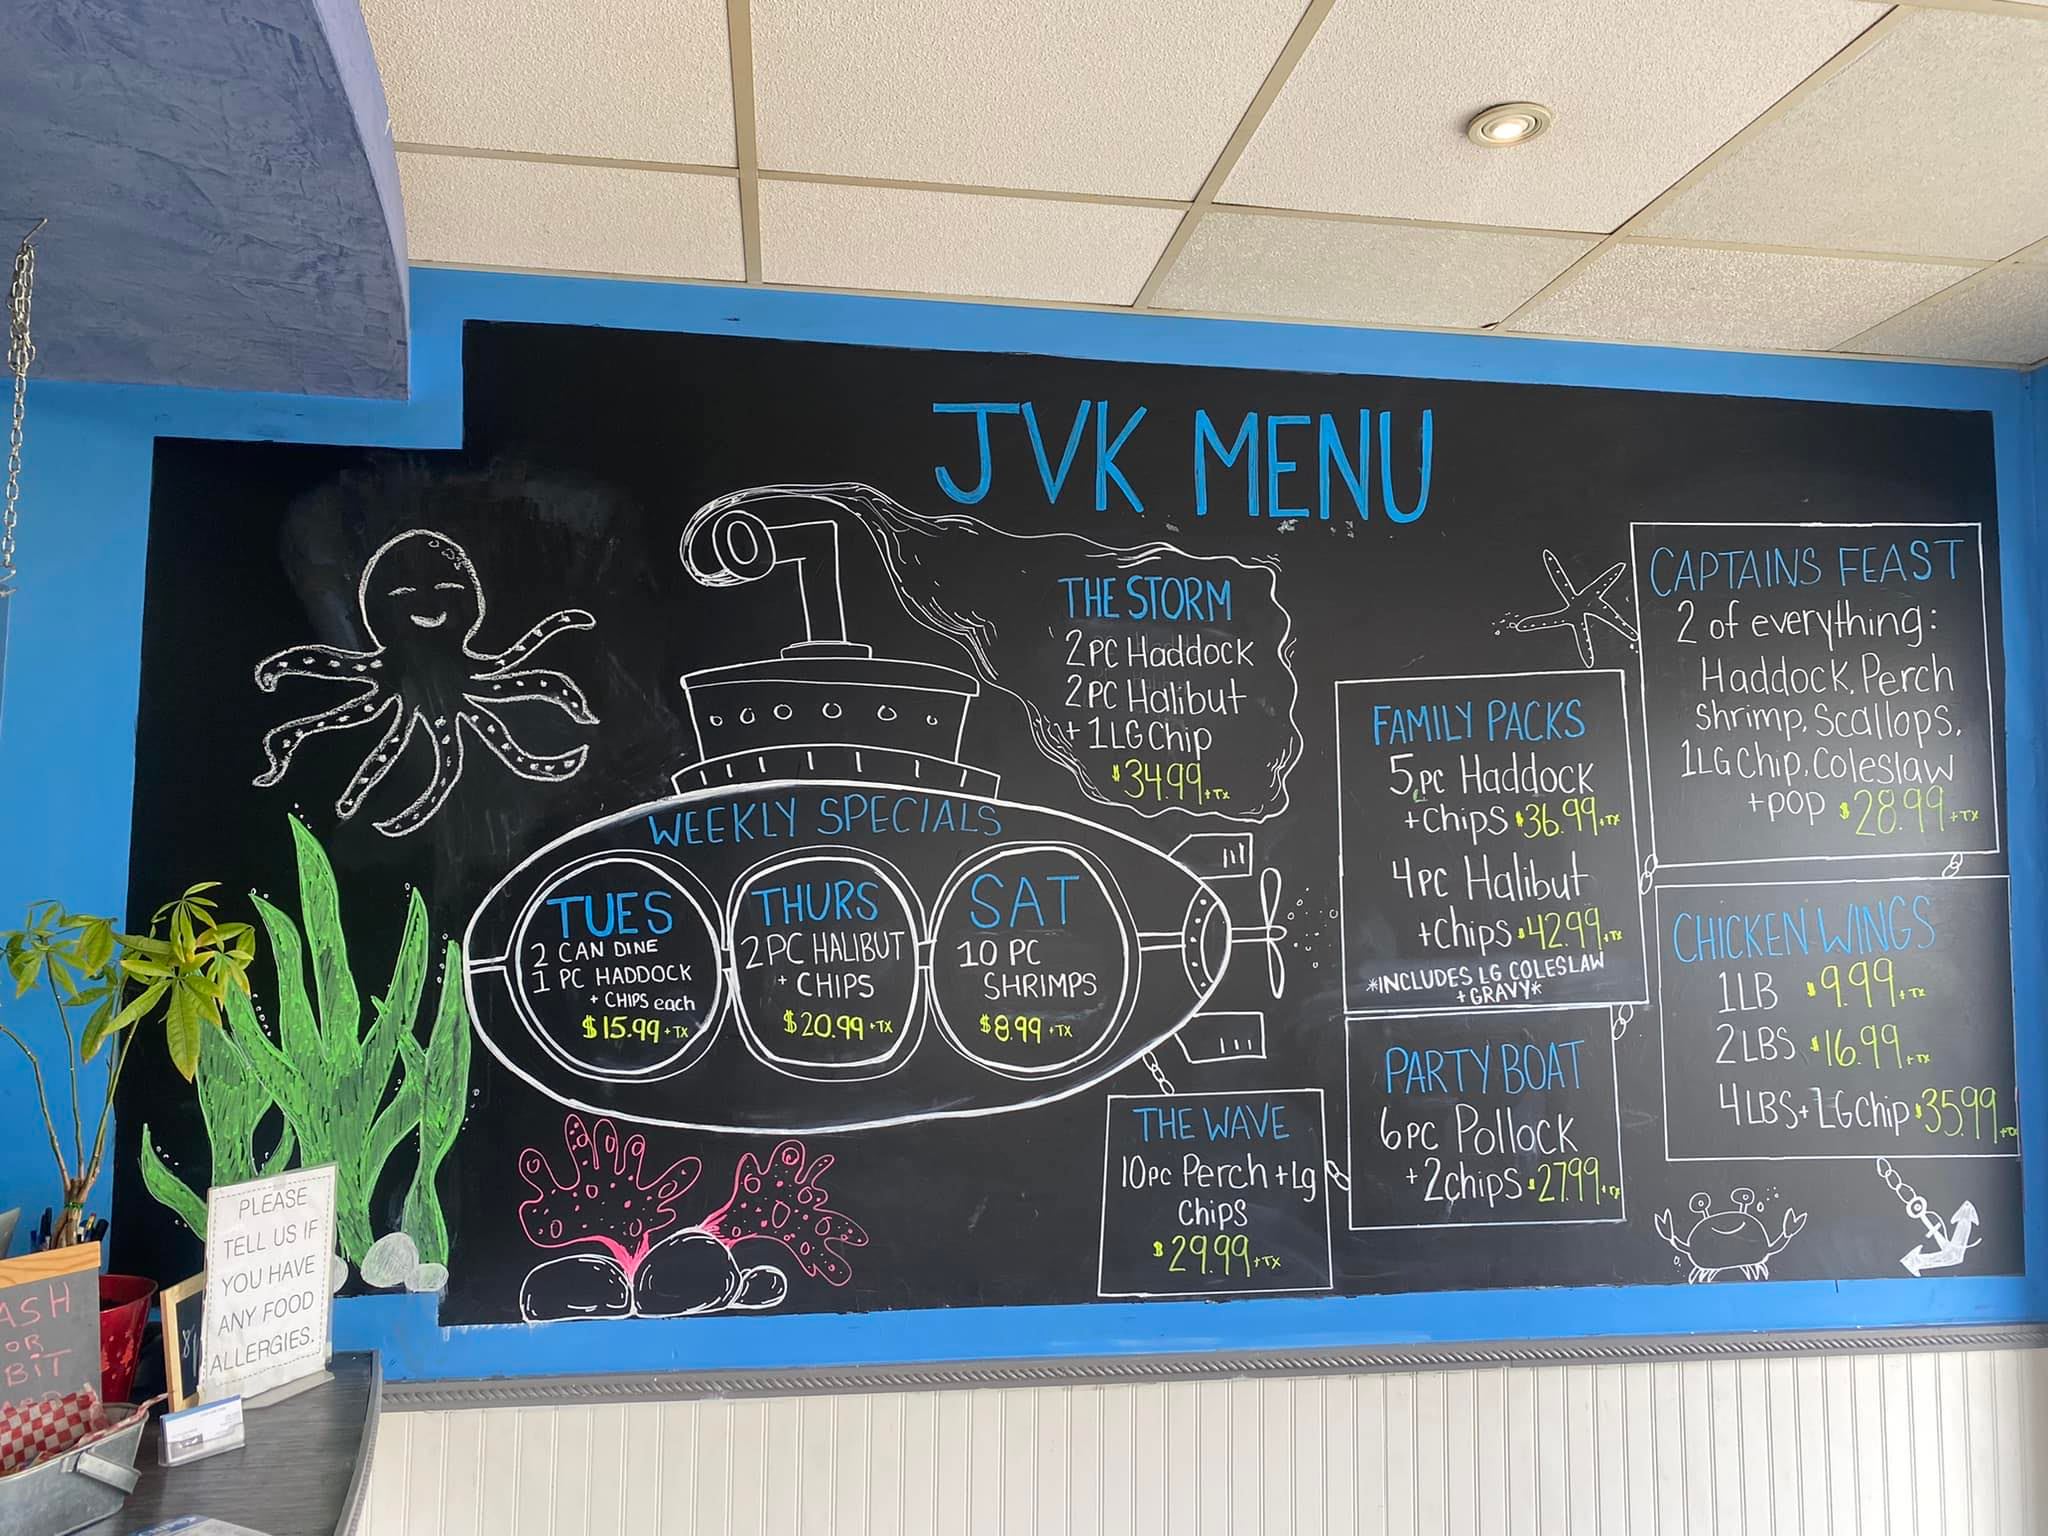 JVK MENU
THE STORM
2PC Haddock
2PC Halibut
+ 1LG Chip
$34.99 +TX
WEEKLY SPECIALS
TUES
2 CAN DINE
1 PC HADDOCK
+ CHIPS each
$15.99 +TX
THURS
2 PC HALIBUT
+ CHIPS
$20.99 +TX
SAT
10 PC
SHRIMPS
$8.99 +TX
FAMILY PACKS
5pc Haddock
+Chips $36.99 +TX
4PC Halibut
+Chips $42.99 +TX
*INCLUDES LG COLESLAW
+ GRAVY*
CAPTAINS FEAST
2 of everything:
Haddock, Perch
Shrimp, Scallops,
1LG Chip, Coleslaw
+pop $28.99 +TX
CHICKEN WINGS
1LB $9.99 +TX
2LBS $16.99 +TX
4LBS + LG Chip $35.99 +TX
PARTY BOAT
6PC Pollock
+2chips $27.99 +TX
THE WAVE
10pc Perch + Lg
Chips
$29.99 +TX
PLEASE
TELL US IF
YOU HAVE
ANY FOOD
ALLERGIES.
ASH
OR
BIT